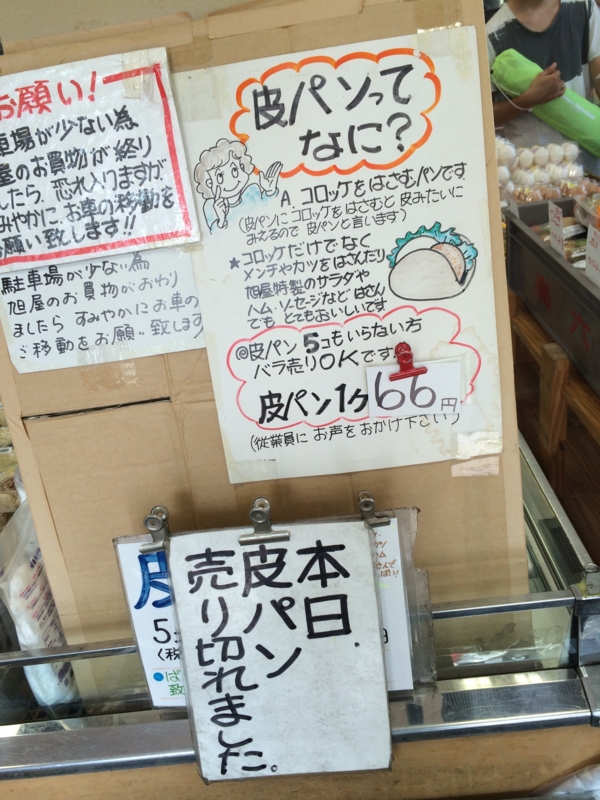 お願い!
車場が少ない為
屋のお買物が終り
したら、恐れ入りますが
みやかに、お車の移動を
願い致します!!
駐車場が少ない為
旭屋のお買物がおわり
ましたら すみやかにお車の
ご移動をお願い致します
皮パンって
なに?
A. コロッケをはさむパンです
(皮パンにコロッケをはさむと皮みたいに
みえるので皮パンと言います)
★コロッケだけでなく
メンチやカツをはさんだり
旭屋特製のサラダや
ハム・ソーセージなどはさん
でも とてもおいしいです
◎皮パン5コもいらない方
バラ売りOKです
皮パン1ケ66円
(従業員に お声をおかけ下さい)
本日
皮パン
売り切れました。
皮
5コ
(税
●ば
致
円